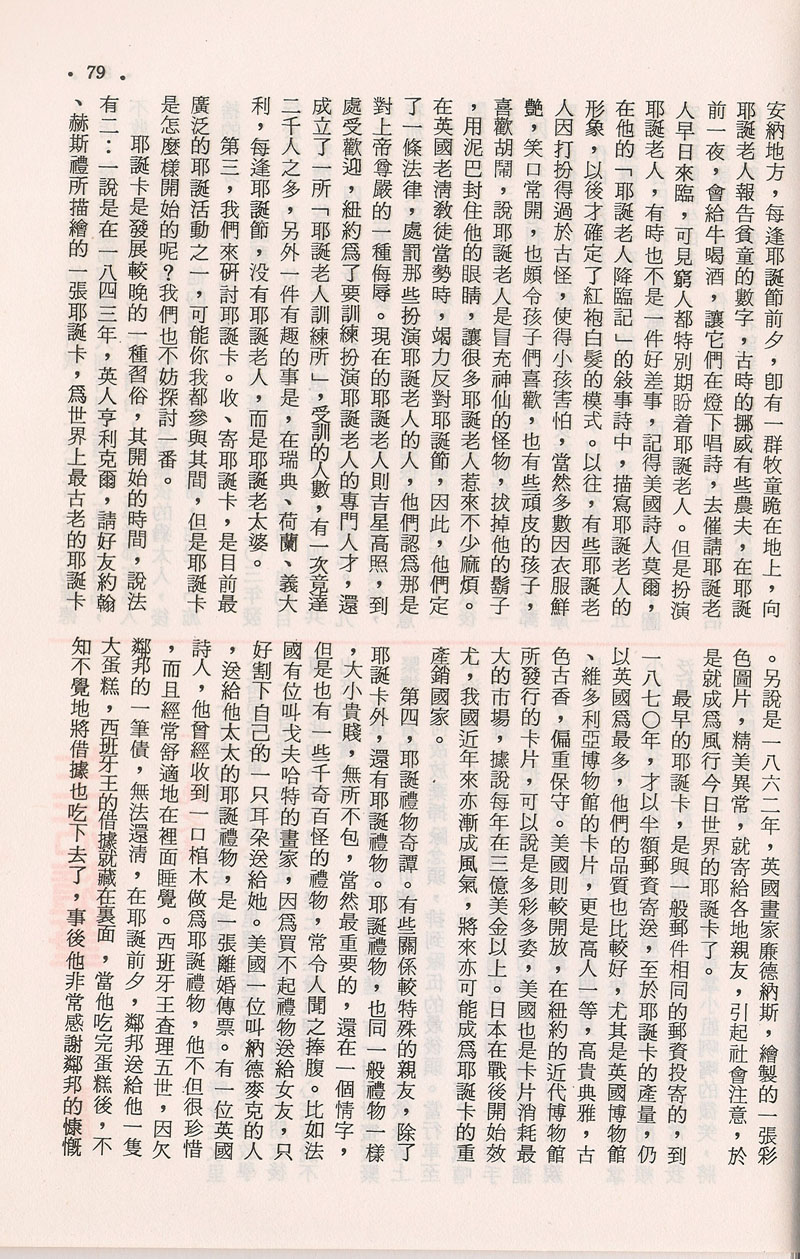 • 79 •
安納地方，每逢耶誕節前夕，卽有一群牧童跪在地上，向
耶誕老人報告貧童的數字，古時的挪威有些農夫，在耶誕
前一夜，會給牛喝酒，讓它們在燈下唱詩，去催請耶誕老
人早日來臨，可見窮人都特別期盼着耶誕老人。但是扮演
耶誕老人，有時也不是一件好差事，記得美國詩人莫爾，
在他的「耶誕老人降臨記」的敍事詩中，描寫耶誕老人的
形象，以後才確定了紅袍白髮的模式。以往，有些耶誕老
人因打扮得過於古怪，使得小孩害怕，當然多數因衣服鮮
艷，笑口常開，也頗令孩子們喜歡，也有些頑皮的孩子，
喜歡胡鬧，說耶誕老人是冒充神仙的怪物，拔掉他的鬍子
，用泥巴封住他的眼睛，讓很多耶誕老人惹來不少麻煩。
在英國老淸敎徒當勢時，竭力反對耶誕節，因此，他們定
了一條法律，處罰那些扮演耶誕老人的人，他們認爲那是
對上帝尊嚴的一種侮辱。現在的耶誕老人則吉星高照，到
處受歡迎，紐約爲了要訓練扮演耶誕老人的專門人才，還
成立了一所「耶誕老人訓練所」，受訓的人數，有一次竟達
二千人之多，另外一件有趣的事是，在瑞典、荷蘭、義大
利，每逢耶誕節，没有耶誕老人，而是耶誕老太婆。
第三，我們來硏討耶誕卡。收、寄耶誕卡，是目前最
廣泛的耶誕活動之一，可能你我都參與其間，但是耶誕卡
是怎麼樣開始的呢？我們也不妨探討一番。
耶誕卡是發展較晚的一種習俗，其開始的時間，說法
有二：一說是在一八四三年，英人亨利克爾，請好友約翰
、赫斯禮所描繪的一張耶誕卡，爲世界上最古老的耶誕卡
。另說是一八六二年，英國畫家廉德納斯，繪製的一張彩
色圖片，精美異常，就寄給各地親友，引起社會注意，於
是就成爲風行今日世界的耶誕卡了。
最早的耶誕卡，是與一般郵件相同的郵資投寄的，到
一八七〇年，才以半額郵資寄送，至於耶誕卡的產量，仍
以英國爲最多，他們的品質也比較好，尤其是英國博物館
、維多利亞博物館的卡片，更是高人一等，高貴典雅，古
色古香，偏重保守。美國則較開放，在紐約的近代博物館
所發行的卡片，可以說是多彩多姿，美國也是卡片消耗最
大的市場，據說每年在三億美金以上。日本在戰後開始效
尤，我國近年來亦漸成風氣，將來亦可能成爲耶誕卡的重
產銷國家。
第四，耶誕禮物奇譚。有些關係較特殊的親友，除了
耶誕卡外，還有耶誕禮物。耶誕禮物，也同一般禮物一樣
，大小貴賤，無所不包，當然最重要的，還在一個情字，
但是也有一些千奇百怪的禮物，常令人聞之捧腹。比如法
國有位叫戈夫哈特的畫家，因爲買不起禮物送給女友，只
好割下自己的一只耳朶送給她。美國一位叫納德麥克的人
，送給他太太的耶誕禮物，是一張離婚傳票。有一位英國
詩人，他曾經收到一口棺木做爲耶誕禮物，他不但很珍惜
，而且經常舒適地在裡面睡覺。西班牙王查理五世，因欠
鄰邦的一筆債，無法還淸，在耶誕前夕，鄰邦送給他一隻
大蛋糕，西班牙王的借據就藏在裏面，當他吃完蛋糕後，不
知不覺地將借據也吃下去了，事後他非常感謝鄰邦的慷慨